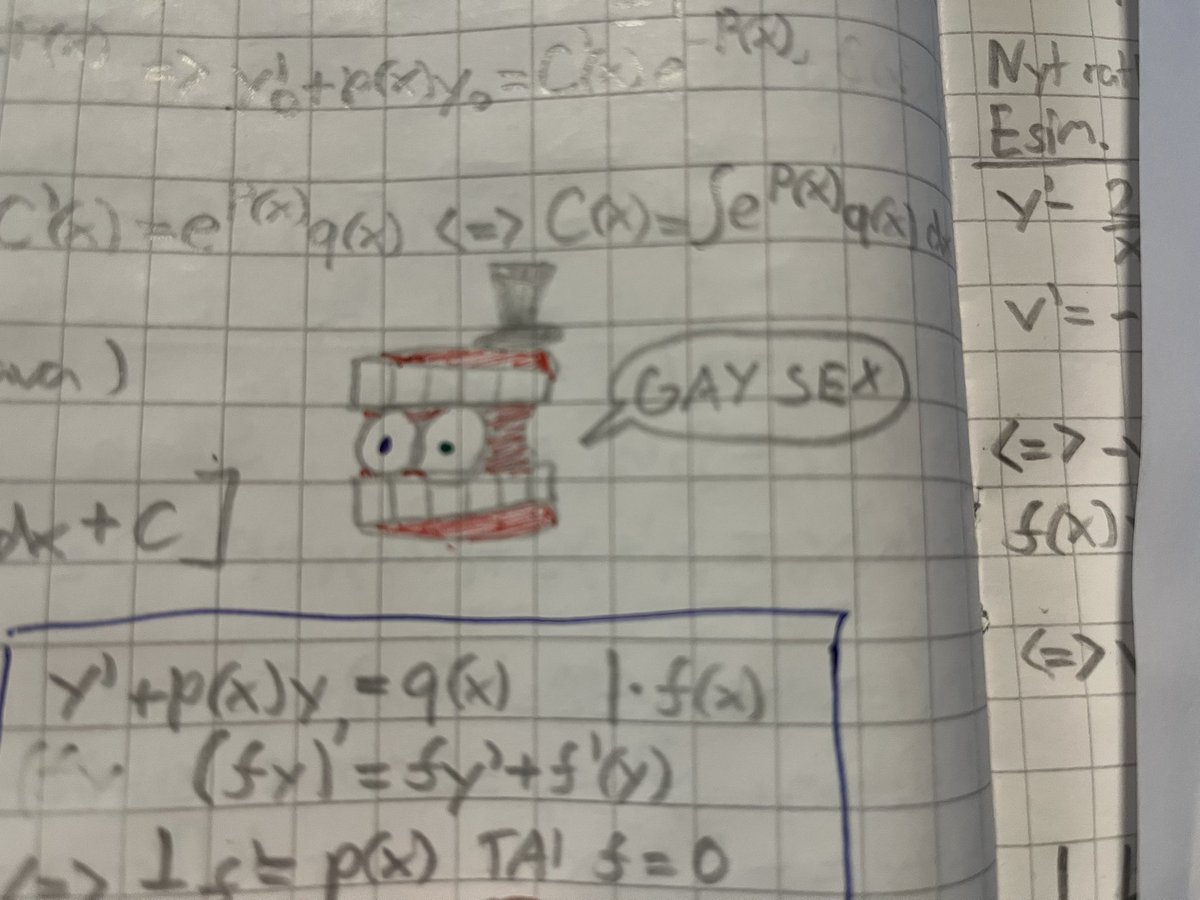 => y₀' + p(x)y₀ = C'(x) e^-P(x),
C'(x) = e^P(x) q(x) <=> C(x) = ∫e^P(x) q(x) dx
)
GAY SEX
dx + C ]
y' + p(x)y = q(x) | · f(x)
(fy)' = fy' + f'(y)
<=> 1 f' = p(x) TAI f = 0
Nyt
Esim.
y' - 2/x
v' = -
<=> -
f(x)
<=>